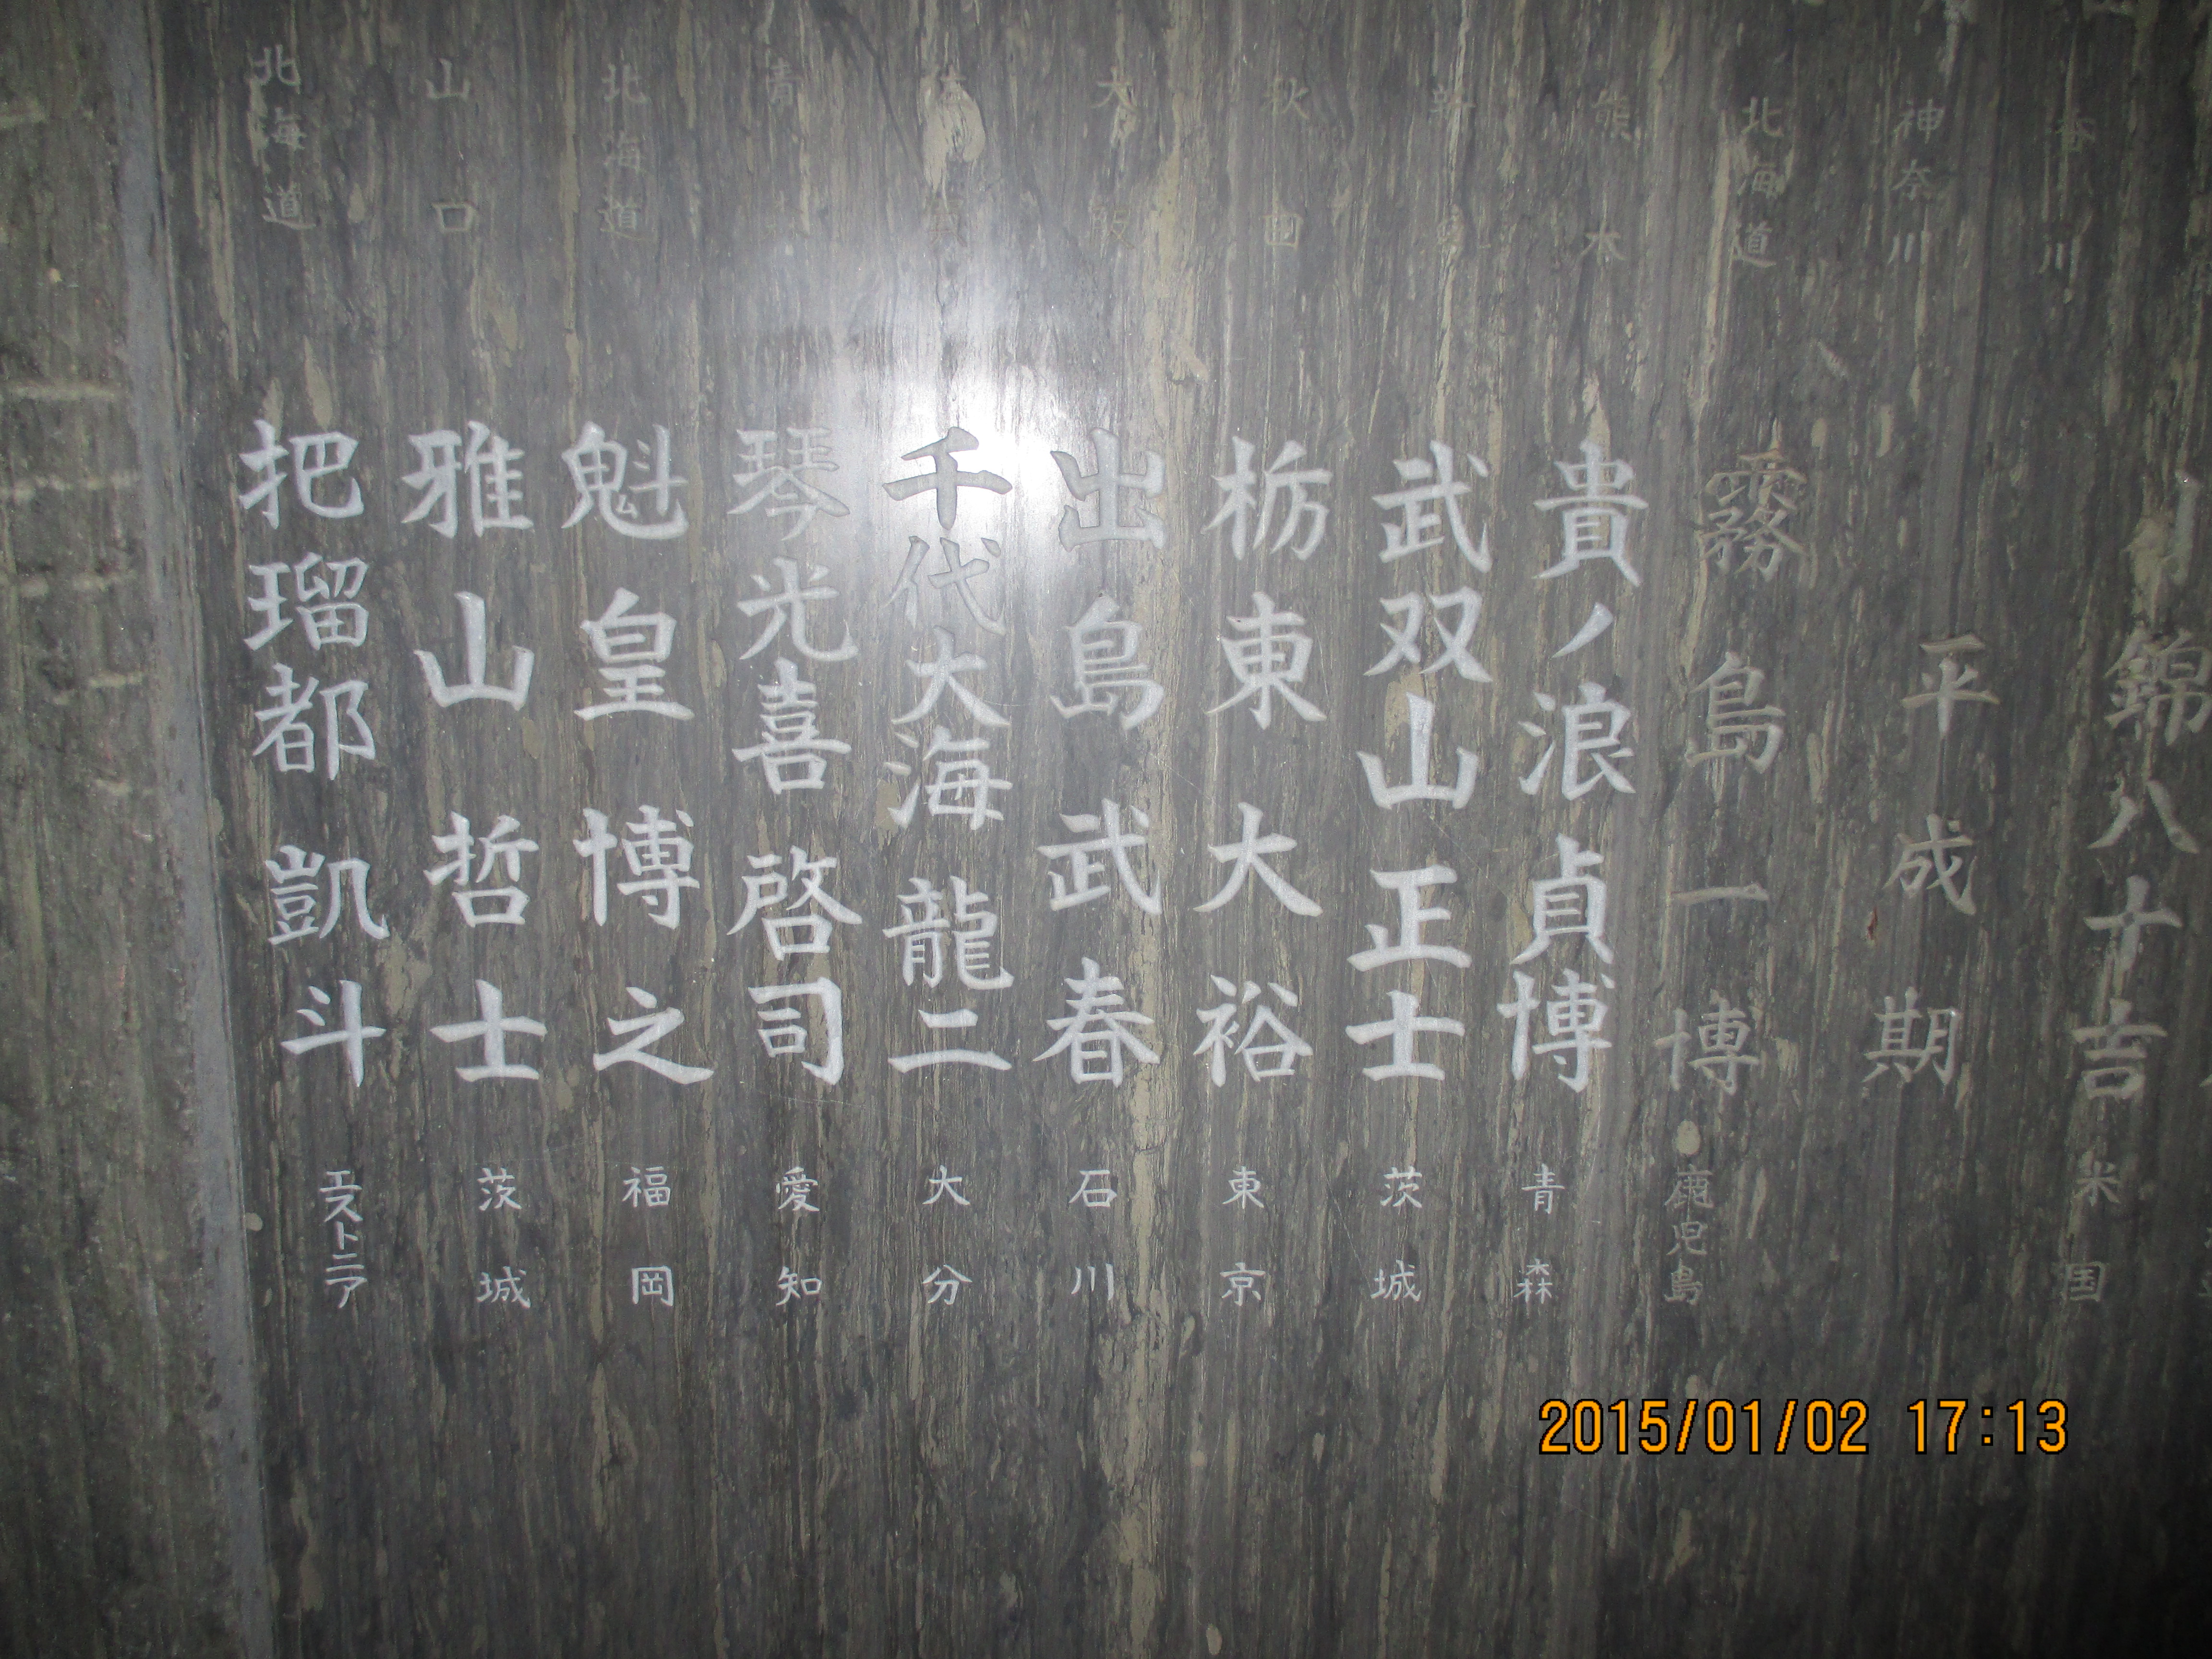 香川
神奈川
北海道
熊本
秋田
大阪
青
北海道
山口
北海道
錦八十吉 米国
平成期
霧島一博 鹿児島
貴ノ浪貞博 青森
武双山正士 茨城
栃東大裕 東京
出島武春 石川
千代大海龍二 大分
琴光喜啓司 愛知
魁皇博之 福岡
雅山哲士 茨城
把瑠都凱斗 エストニア
2015/01/02 17:13